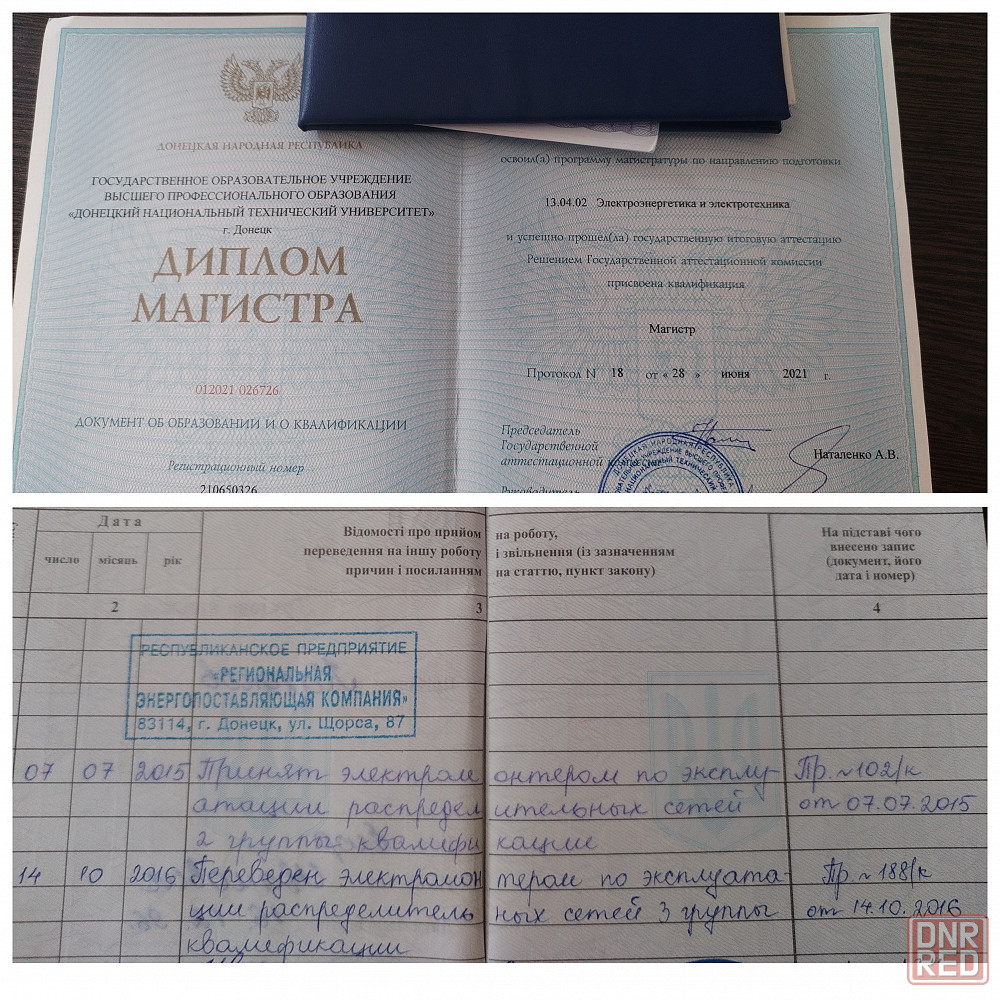 ДОНЕЦКАЯ НАРОДНАЯ РЕСПУБЛИКА
ГОСУДАРСТВЕННОЕ ОБРАЗОВАТЕЛЬНОЕ УЧРЕЖДЕНИЕ
ВЫСШЕГО ПРОФЕССИОНАЛЬНОГО ОБРАЗОВАНИЯ
«ДОНЕЦКИЙ НАЦИОНАЛЬНЫЙ ТЕХНИЧЕСКИЙ УНИВЕРСИТЕТ»
г. Донецк
ДИПЛОМ
МАГИСТРА
012021 026726
ДОКУМЕНТ ОБ ОБРАЗОВАНИИ И О КВАЛИФИКАЦИИ
Регистрационный номер
210650326
освоил(а) программу магистратуры по направлению подготовки
13.04.02 Электроэнергетика и электротехника
и успешно прошел(ла) государственную итоговую аттестацию
Решением Государственной аттестационной комиссии
присвоена квалификация
Магистр
Протокол N 18 от « 28 » июня 2021 г.
Председатель
Государственной
аттестационной
Наталенко А.В.
Руководитель
ДОНЕЦКАЯ НАРОДНАЯ РЕСПУБЛИКА
Дата
число місяць рік
Відомості про прийом на роботу,
переведення на іншу роботу і звільнення (із зазначенням
причин і посиланням на статтю, пункт закону)
На підставі чого
внесено запис
(документ, його
дата і номер)
2 3 4
РЕСПУБЛИКАНСКОЕ ПРЕДПРИЯТИЕ
«РЕГИОНАЛЬНАЯ
ЭНЕРГОПОСТАВЛЯЮЩАЯ КОМПАНИЯ»
83114, г. Донецк, ул. Щорса, 87
07 07 2015 Принят электромонтером по эксплу- Пр. ~102/к
атации распределительных сетей от 07.07.2015
2 группы квалификации
14 10 2016 Переведен электромонтером по эксплуата- Пр. ~188/к
ции распределительных сетей 3 группы от 14.10.2016
квалификации
DNR
RED